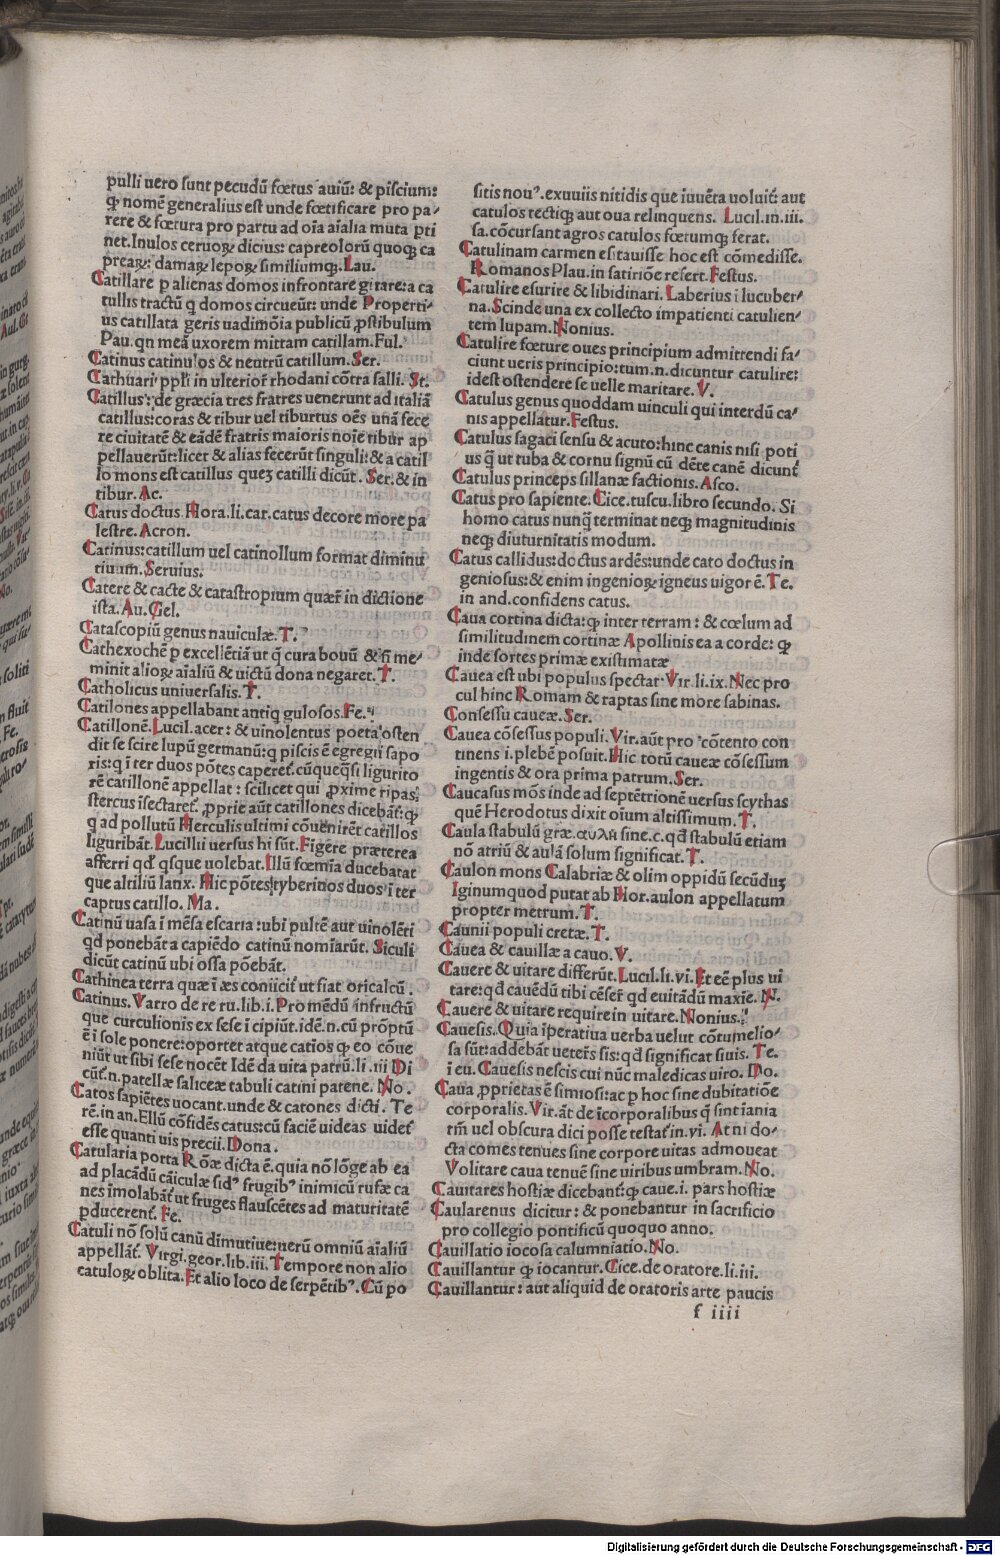 pulli uero sunt pecudū fœtus auiū: & pisciumː
ꝙ nomē generalius est unde fœtificare pro pa⸗
rere & fœtura pro partu ad oīa aīalia muta pti
net. Inulos ceruoꝝ dicius: capreolorū quoqꝫ ca
preaꝝ: damaꝝ lepoꝝ similiumqꝫ. Lau.
Catillare p alienas domos infrontare gitare: a ca
tullis tractū q domos circueūt: unde Properti⸗
us catillata geris uadimōia publicū ꝓstibulum
Pau. qn meā uxorem mittam catillam. Ful.
Catinus catinulos & neutrū catillum. Ser.
Cathuari ppłi in ulterior̄ rhodani cōtra salli. St.
Catillus: de græcia tres fratres uenerunt ad italiā
catillus: coras & tibur uel tiburtus oēs unā fece
re ciuitatē & eādē fratris maioris noīe tibur ap
pellauerūt: licet & alias fecerūt singuli: & a catil
lo mons est catillus queꝫ catilli dicūt. Ser. & in
tibur. Ac.
Catus doctus. Hora. li. car. catus decore more pa
lestre. Acron.
Catinus: catillum uel catinollum format diminu
tiuum. Seruius.
Catere & cacte & catastropium quær̄ in dictione
ista. Au. Gel.
Catascopiū genus nauiculæ. T.
Cathexochē p excellētiā ut q̄ cura bouū & si me⸗
minit alioꝝ aīaliū & uictū dona negaret. T.
Catholicus uniuersalis. T.
Catilones appellabant antiq gulosos. Fe.
Catillonē. Lucil. acer: & uinolentus poeta osten
dit se scire lupū germanū: q piscis ē egregii sapo
ris: q ī ter duos pōtes caperet̄. cūqueq̄si ligurito
rē catillonē appellat: scilicet qui ꝓxime ripas
stercus īsectaret̄. ꝓprie aūt catillones dicebāt̄: ꝙ
q ad pollutū Herculis ultimi cōuenirēt catillos
liguribāt. Lucillii uersus hi sūt. Figere præterea
afferri qđ qsque uolebat. Illū fœmia ducebatat
que altiliū lanx. Hic pōtes tyberinos duos ī ter
captus catillo. Ma.
Catinū uasa ī mēsa escaria: ubi pultē aut uinolēti
qđ ponebāt a capiēdo catinū nomīarūt. Siculi
dicūt catinū ubi ossa pōebāt.
Cathinea terra quæ ī æs coniicit̄ ut fiat oricalcū.
Catinus. Varro de re ru. lib. i. Pro mēdū īnfructū
que curculionis ex sese ī cipiūt. idē. n. cū prōptū
ē ī sole ponere: oportet atque catios ꝙ eo cōue
niūt ut sibi sese nocēt Idē da uita patrū. li. iii Di
cūt̄. n. patellæ saliceæ tabuli catini patene. No.
Catos sapiētes uocant. unde & catones dicti. Te
rē. in an. Ellū cōfidēs catus: cū faciē uideas uidet̄
esse quanti uis precii. Dona.
Catularia porta Rōæ dicta ē. quia nō lōge ab ea
ad placādū cāiculæ sidꝰ frugibꝰ inimicū rufæ ca
nes imolabāt̄ ut fruges flauscētes ad maturitatē
pducerent̄. Fe.
Catuli nō solū canū dimutiue: nerū omniū aīaliū
appellāt̄. Virgi. geor. lib. iii. Tempore non alio
catuloꝝ oblita. Et alio loco de serpētibꝰ. Cū po
sitis nouꝰ. exuuiis nitidis que iuuēta uoluit̄: aut
catulos tectiqꝫ aut oua relinquens. Lucil. in. iii.
sa. cōcursant agros catulos fœtumqꝫ ferat.
Catulinam carmen esitauisse hoc est cōmedisse.
Romanos Plau. in satiriōe refert. Festus.
Catulire esurire & libidinari. Laberius i lucuber⸗
na. Scinde una ex collecto impatienti catulien⸗
tem lupam. Nonius.
Catulire fœture oues principium admittendi fa⸗
ciunt ueris principio: tum. n. dicuntur catulire:
idest ostendere se uelle maritare. V.
Catulus genus quoddam uinculi qui interdū ca⸗
nis appellatur. Festus.
Catulus sagaci sensu & acuto: hinc canis nisi poti
us q̄ ut tuba & cornu signū cū dēte canē dicunt̄
Catulus princeps sillanæ factionis. Asco.
Catus pro sapiente. Cice. tuscu. libro secundo. Si
homo catus nunq̄ terminat neqꝫ magnitudinis
neqꝫ diuturnitatis modum.
Catus callidus: doctus ardēs: unde cato doctus in
geniosus: & enim ingenioꝝ igneus uigor ē. Te.
in and. confidens catus.
Caua cortina dicta: ꝙ inter terram: & cœlum ad
similitudinem cortinæ Apollinis ea a corde: ꝙ
inde sortes primæ existimatæ
Cauea est ubi populus spectat. Vir. li. ix. Nec pro
cul hinc Romam & raptas sine more sabinas.
Consessu caueæ. Ser.
Cauea cōsessus populi. Vir. aūt pro cōtento con
tinens i. plebē posuit. Hic totū caueæ cōsessum
ingentis & ora prima patrum. Ser.
Caucasus mōs inde ad septētrionē uersus scythas
quē Herodotus dixit oium altissimum. T.
Caula stabulū græ. αυλή sine. c. qđ stabulū etiam
nō atriū & aulā solum significat. T.
Caulon mons Calabriæ & olim oppidū secūduꝫ
Iginumquod putat ab Hor. aulon appellatum
propter metrum. T.
Caunii populi cretæ. T.
Cauea & cauillæ a cauo. V.
Cauere & uitare differūt. Lucil. li. vi. Et eē plus ui
tare: qđ cauēdū tibi cēser̄ qđ euitādū maxīe. N.
Cauere & uitare require in uitare. Nonius.
Cauesis. Quia īperatiua uerba uelut cōtumelio⸗
sa sūt: addebāt ueter̄s sis: qđ significat siuis. Te.
i eu. Cauesis nescis cui nūc maledicas uiro. Do.
Caua ꝓprietas ē simiosi: ac p hoc sine dubitatiōe
corporalis. Vir. āt de īcorporalibus q̄ sint īania
tm̄ uel obscura dici posse testat̄ in. vi. At ni do⸗
cta comes tenues sine corpore uitas admoueat
Volitare caua tenuē sine uiribus umbram. No.
Cauitares hostiæ dicebant̄: ꝙ caue. i. pars hostiæ
Caularenus dicitur: & ponebantur in sacrificio
pro collegio pontificū quoquo anno.
Cauillatio iocosa calumniatio. No.
Cauillantur ꝙ iocantur. Cice. de oratore. li. iii.
Cauillantur: aut aliquid de oratoris arte paucis
f iiii
Digitalisierung gefördert durch die Deutsche Forschungsgemeinschaft - DFG